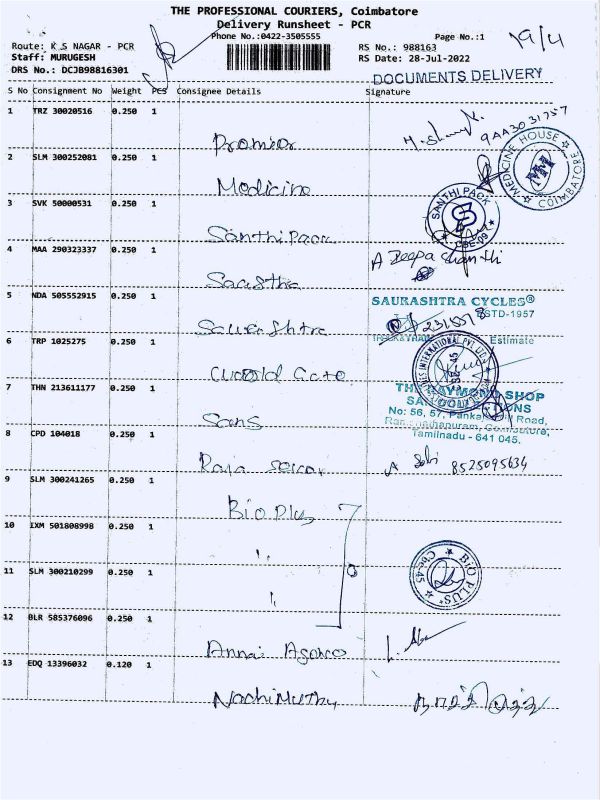 THE PROFESSIONAL COURIERS, Coimbatore
Delivery Runsheet - PCR
Phone No.:0422-3505555
Page No.:1
19/4
Route: K S NAGAR - PCR
RS No.: 988163
Staff: MURUGESH
RS Date: 28-Jul-2022
DRS No.: DCJB98816301
DOCUMENTS DELIVERY
S No Consignment No Weight PCS Consignee Details Signature
1 TRZ 30020516 0.250 1
Premier
2 SLM 300252081 0.250 1
Medicine
MEDICINE HOUSE COIMBATORE
3 SVK 50000531 0.250 1
Santhi Pack
SANTHI PACK CBE-09
4 MAA 290323337 0.250 1
Saastha
A Deepa Shanthi
5 NDA 505552915 0.250 1
Saurashtra
SAURASHTRA CYCLES®
ESTD-1957
6 TRP 1025275 0.250 1
World Gate
Estimate
INTERNATIONAL PVT LTD
7 THN 213611177 0.250 1
Sans
THE RAYMOND SHOP
No: 56, 57, Road,
Coimbatore,
Tamilnadu - 641 045.
8 CPD 104018 0.250 1
Raja
8525095634
9 SLM 300241265 0.250 1
Bio Plus
10 IXM 501808998 0.250 1
"
11 SLM 300210299 0.250 1
"
BIO PLUS Cbe-45
12 BLR 585376096 0.250 1
Annai
13 EDQ 13396032 0.120 1
Nachimuthu